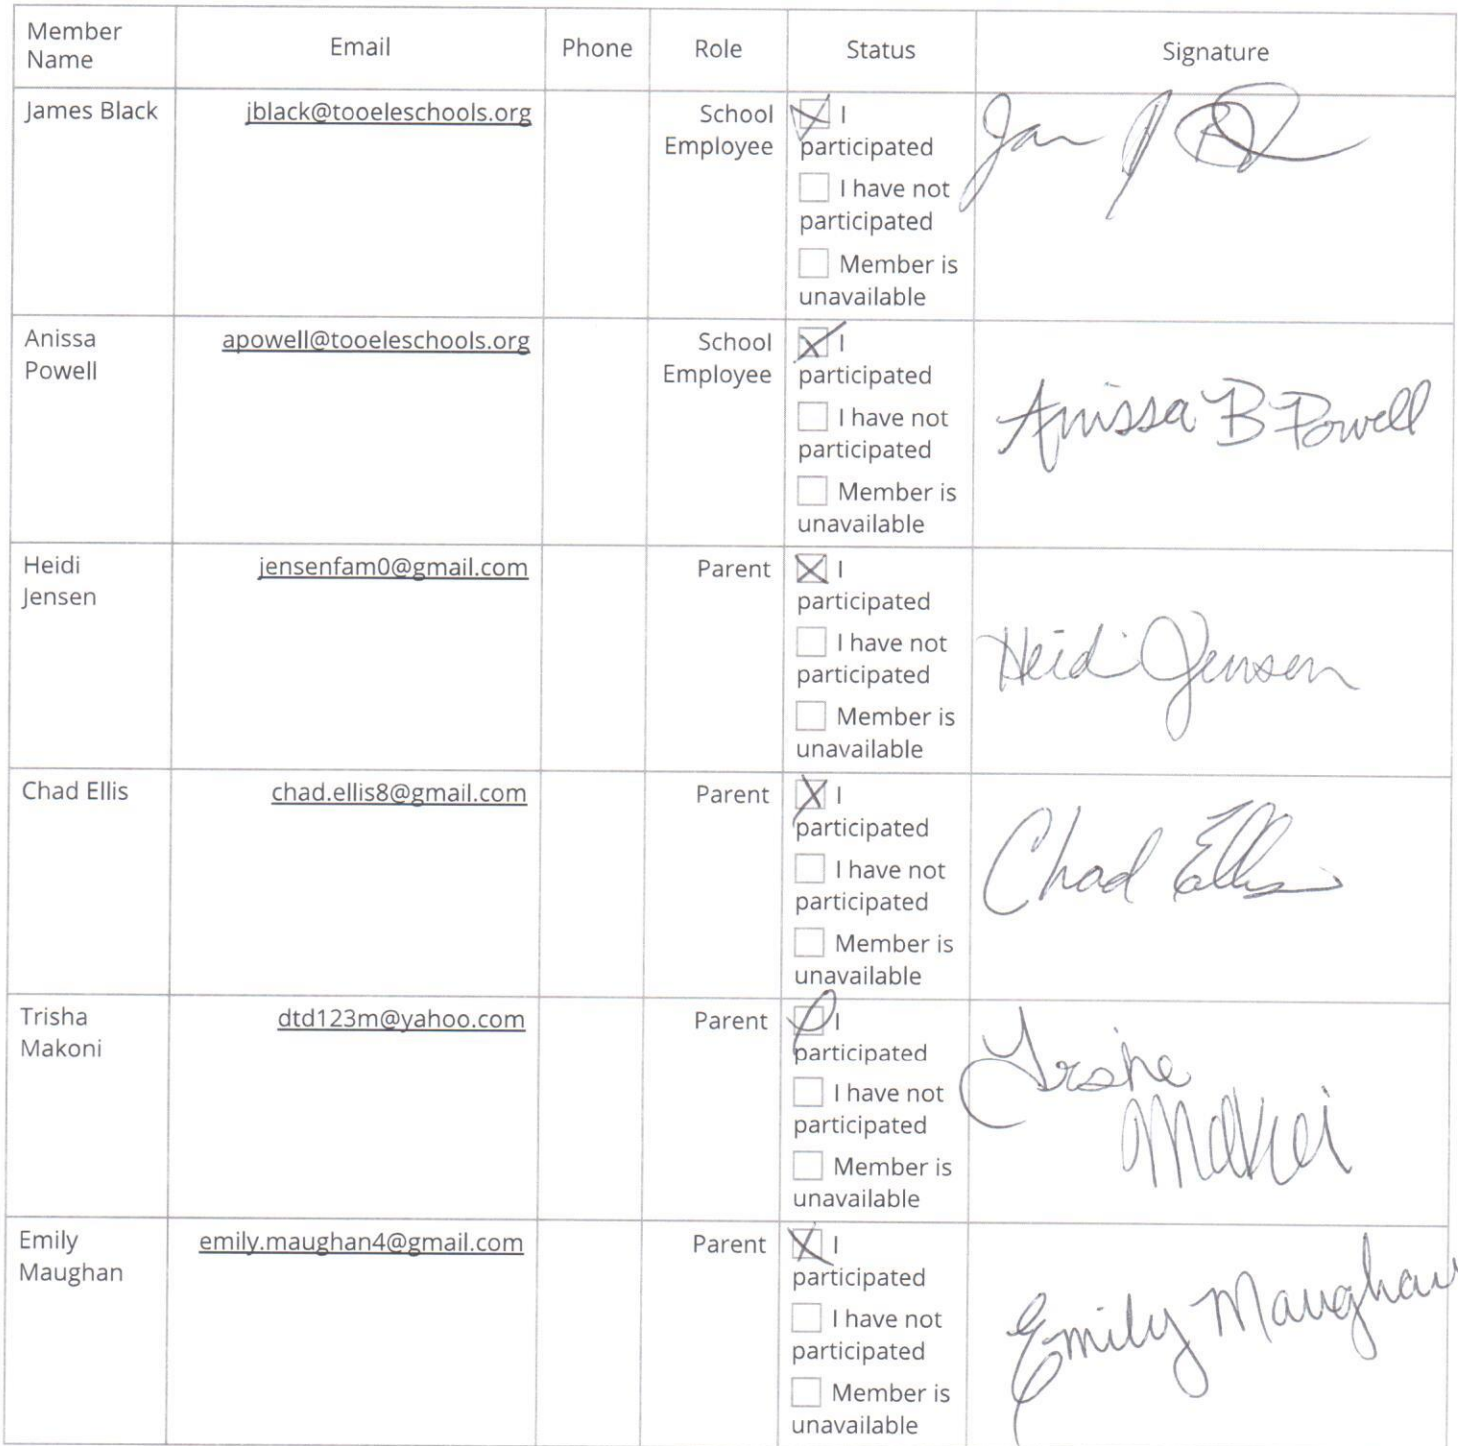 Member
Name
Email
Phone
Role
Status
Signature
James Black
jblack@tooeleschools.org
School
Employee
I
participated
I have not
participated
Member is
unavailable
Anissa
Powell
apowell@tooeleschools.org
School
Employee
I
participated
I have not
participated
Member is
unavailable
Anissa B Powell
Heidi
Jensen
jensenfam0@gmail.com
Parent
I
participated
I have not
participated
Member is
unavailable
Heidi Jensen
Chad Ellis
chad.ellis8@gmail.com
Parent
I
participated
I have not
participated
Member is
unavailable
Chad Ellis
Trisha
Makoni
dtd123m@yahoo.com
Parent
I
participated
I have not
participated
Member is
unavailable
Emily
Maughan
emily.maughan4@gmail.com
Parent
I
participated
I have not
participated
Member is
unavailable
Emily Maughan